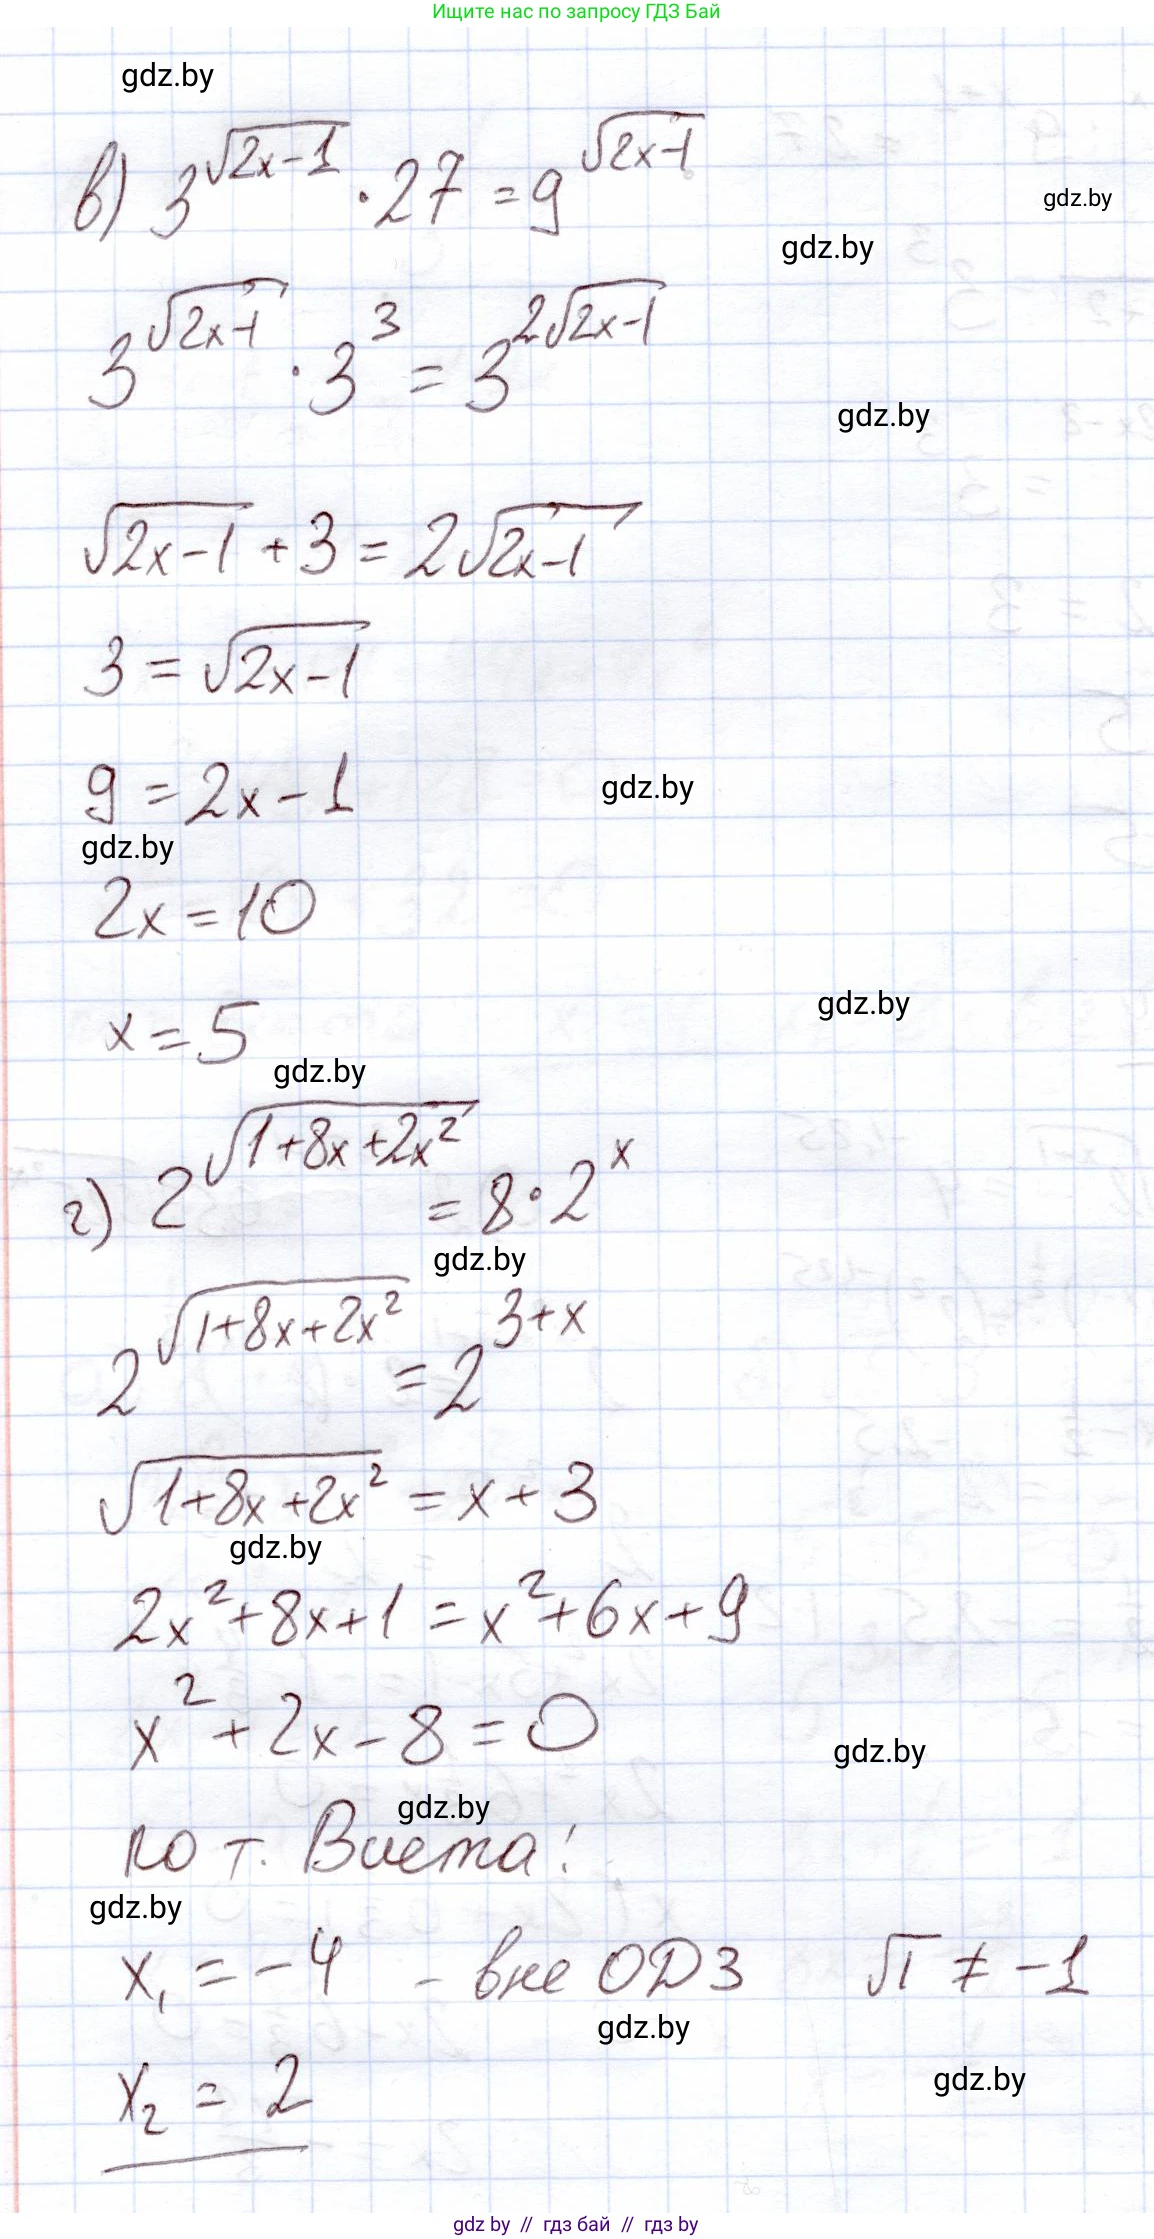 Ищите нас по запросу ГДЗ Бай
gdz.by
в) 3^√(2x-1) · 27 = 9^√(2x-1)
gdz.by
gdz.by
3^√(2x-1) · 3^3 = 3^(2√(2x-1))
gdz.by
√(2x-1) + 3 = 2√(2x-1)
3 = √(2x-1)
9 = 2x - 1
gdz.by
gdz.by
2x = 10
gdz.by
x = 5
gdz.by
г) 2^√(1+8x+2x²) = 8 · 2^x
gdz.by
2^√(1+8x+2x²) = 2^(3+x)
√(1+8x+2x²) = x + 3
gdz.by
2x² + 8x + 1 = x² + 6x + 9
x² + 2x - 8 = 0
gdz.by
gdz.by
по т. Виета:
gdz.by
x₁ = -4 - вне ОДЗ √1 ≠ -1
gdz.by
gdz.by
x₂ = 2
gdz by // гдз бай // гдз by